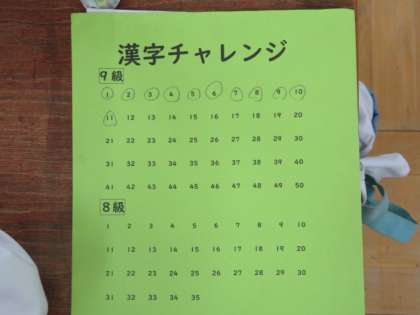 漢字チャレンジ
9級
1 2 3 4 5 6 7 8 9 10
11 12 13 14 15 16 17 18 19 20
21 22 23 24 25 26 27 28 29 30
31 32 33 34 35 36 37 38 39 40
41 42 43 44 45 46 47 48 49 50
8級
1 2 3 4 5 6 7 8 9 10
11 12 13 14 15 16 17 18 19 20
21 22 23 24 25 26 27 28 29 30
31 32 33 34 35